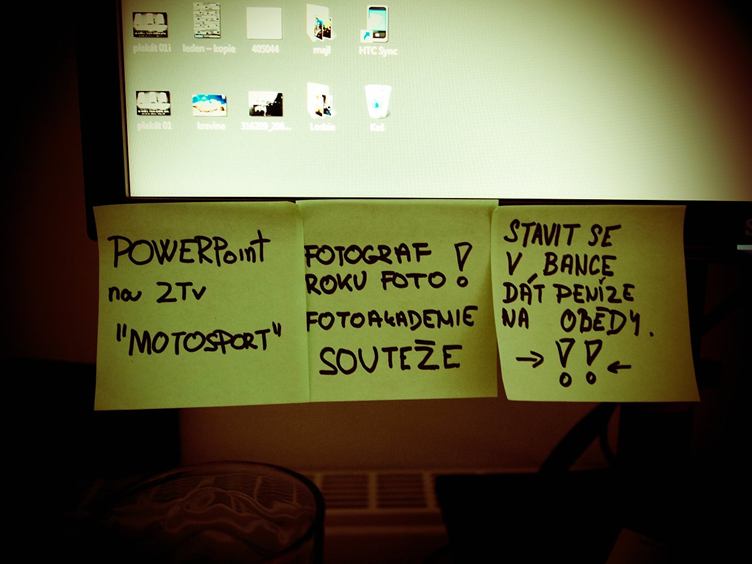 plakát 01i
leden – kopie
405044
maji
HTC Sync
plakát 01
Koš
POWERPoint
na ZTV
"MOTOSPORT"
FOTOGRAF !
ROKU FOTO
FOTOAKADEMIE
SOUTEŽE
STAVIT SE
V BANCE
DÁT PENÍZE
NA OBĚDY.
→ !! ←